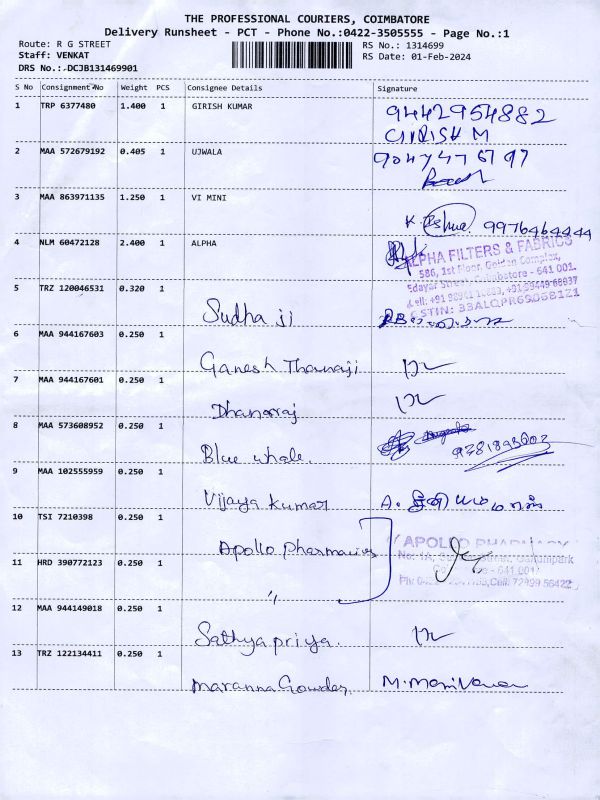 THE PROFESSIONAL COURIERS, COIMBATORE
Delivery Runsheet - PCT - Phone No.:0422-3505555 - Page No.:1
Route: R G STREET RS No.: 1314699
Staff: VENKAT RS Date: 01-Feb-2024
DRS No.:-DCJB131469901
S No Consignment No Weight PCS Consignee Details Signature
1 TRP 6377480 1.400 1 GIRISH KUMAR 9442954882
GIRISH M
2 MAA 572679192 0.405 1 UJWALA
3 MAA 863971135 1.250 1 VI MINI
K. 9976464444
4 NLM 60472128 2.400 1 ALPHA
ALPHA FILTERS & FABRICS
586, 1st Floor, Golden Complex,
Edayar Street, Coimbatore - 641 001.
5 TRZ 120046531 0.320 1
Sudha ji
6 MAA 944167603 0.250 1
Ganesh Thanaji
7 MAA 944167601 0.250 1
Dhanarraj
8 MAA 573608952 0.250 1
Blue whale.
9 MAA 102555959 0.250 1
Vijaya Kumar A.
10 TSI 7210398 0.250 1
Apollo Pharmacies
APOLLO PHARMACY
11 HRD 390772123 0.250 1
〃
12 MAA 944149018 0.250 1
Sathya priya.
13 TRZ 122134411 0.250 1
Maranna Gowder. M. Manivanan